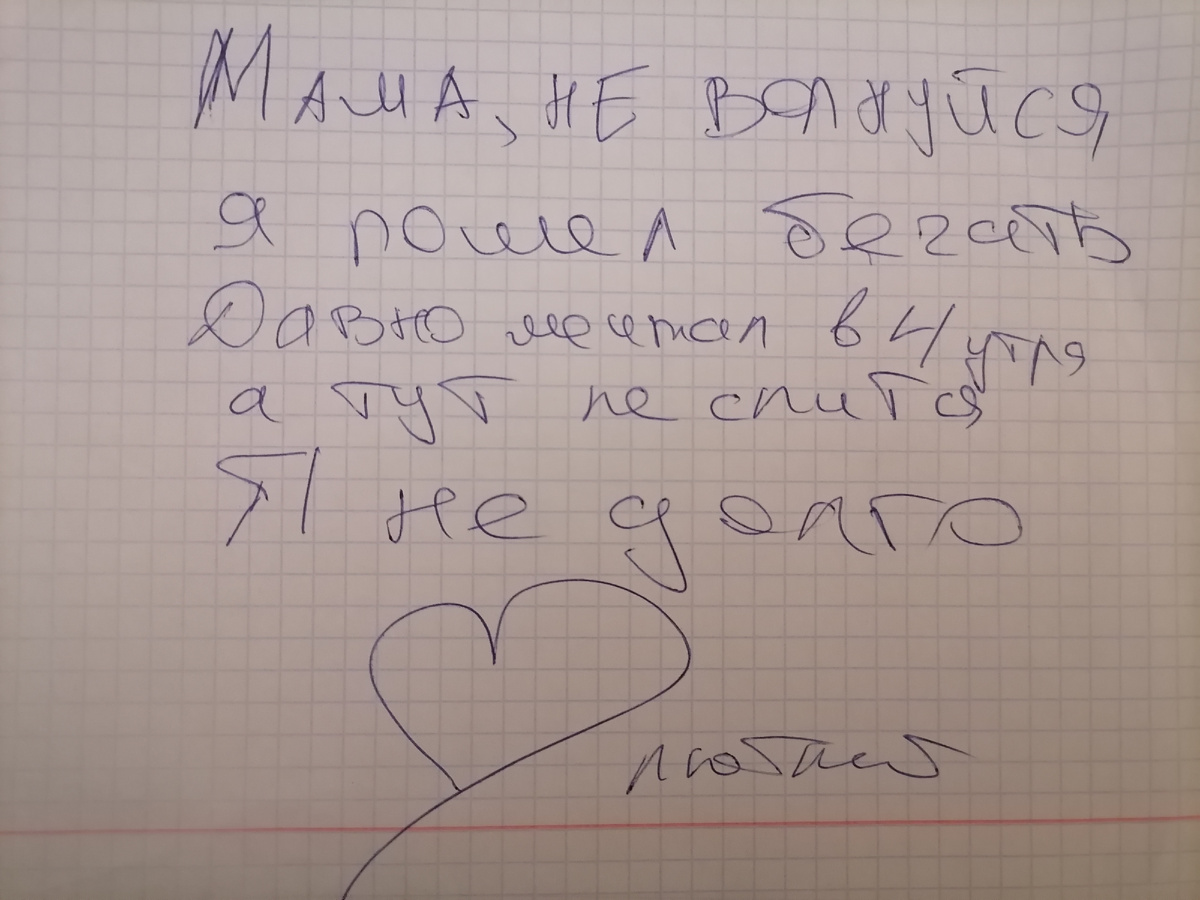 Мама, не волнуйся
Я пошел бегать
Давно мечтал в 4 утря
а тут не спится
Я не долго